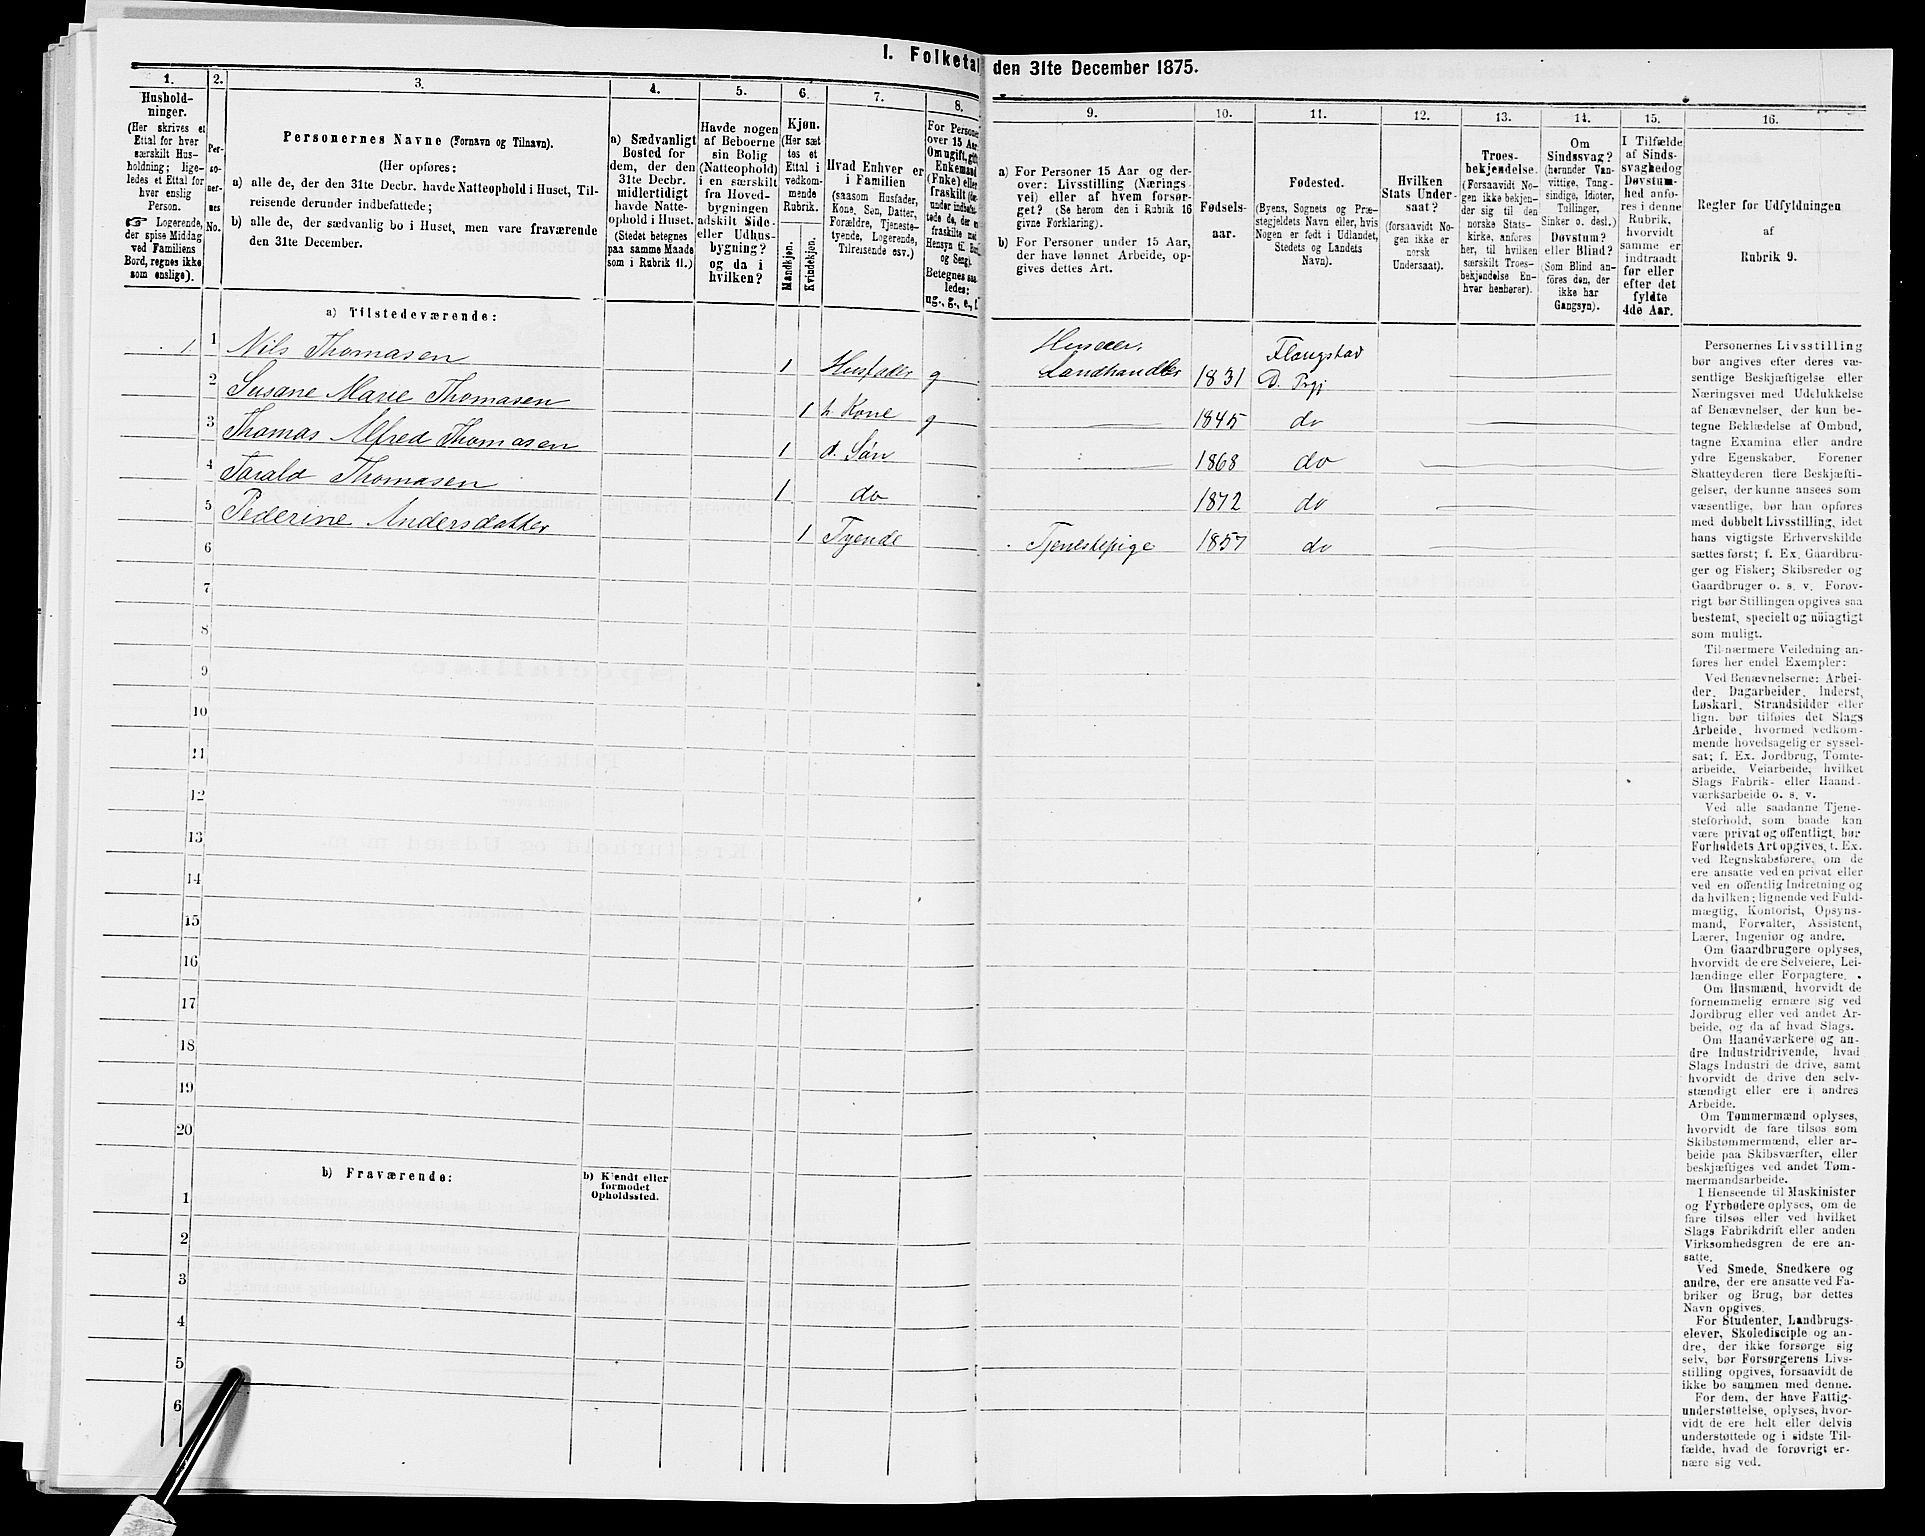 I. Folketal den 31te December 1875.
1.
Hushold-
ninger.
(Her skrives et
Ettal for hver
særskilt Hus-
holdning; lige-
ledes et Ettal for
hver enslig
Person.
☞ Logerende,
der spise Middag
ved Familiens
Bord, regnes ikke
som enslige).
2.
Per-
so-
ner-
nes
No.
3.
Personernes Navne (Fornavn og Tilnavn).
(Her opføres:
a) alle de, der den 31te Decbr. havde Natteophold i Huset, Til-
reisende derunder indbefattede;
b) alle de, der sædvanlig bo i Huset, men vare fraværende
den 31te December.
4.
a) Sædvanligt
Bosted for
dem, der den
31te Decbr.
midlertidigt
havde Natte-
ophold i Huset.
(Stedet betegnes
paa samme Maade
som i Rubrik 11.)
5.
Havde nogen
af Beboerne
sin Bolig
(Natteophold)
i en særskilt
fra Hoved-
bygningen
adskilt Side-
eller Udhus-
bygning?
og da i
hvilken?
6.
Kjøn.
(Her sæt
tes et
Ettal i
vedkom-
mende
Rubrik.
Mandkjøn.
Kvindekjøn.
7.
Hvad Enhver er
i Familien
(saasom Husfader,
Kone, Søn, Datter,
Forældre, Tjeneste-
tyende, Logerende,
Tilreisende osv.)
8.
For Persone
over 15 Aar
Om ugift, gift
Enkemand
(Enke) eller
fraskilt
Hensyn til Bord
og Seng).
Betegnes saa-
ledes:
ug., g., e., f.
9.
a) For Personer 15 Aar og der-
over: Livsstilling (Nærings
vei) eller af hvem forsør-
get? (Se herom den i Rubrik 16
givne Forklaring).
b) For Personer under 15 Aar,
der have lønnet Arbeide, op-
gives dettes Art.
10.
Fødsels-
aar.
11.
Fødested.
(Byens, Sognets og Præ-
stegjeldets Navn eller, hvis
Nogen er født i Udlandet,
Stedets og Landets
Navn).
12.
Hvilken
Stats Under-
saat?
(forsaavidt No-
gen ikke er
norsk
Undersaat).
13.
Troes-
bekjendelse.
(Forsaavidt No-
gen ikke bekjen-
der sig til den
norske Stats-
kirke, anføres
her, til hvilken
særskilt Troes-
bekjendelse En-
hver henhører).
14.
Om
Sindssvag?
(herunder Van-
vittige, Tung-
sindige, Idioter,
Tullinger,
Sinker o. desl.)
Døvstum?
eller Blind?
(Som Blind an-
føres den, der
ikke har
Gangsyn).
15.
I Tilfælde
af Sinds-
svaghedog
Døvstum-
hed anfø-
res i denne
Rubrik,
hvorvidt
samme er
indtraadt
før eller
efter det
fyldte
4de Aar.
16.
Regler for Udfyldningen
af
Rubrik 9.
a) Tilstedeværende:
1 1 Nils Thomasen 1 Husfader g Landhandler 1831 D. Prgj
2 Susane Marie Thomasen 1 h. Kone g 1845 do
3 Thomas Alfred Thomasen 1 d. Søn 1868 do
4 Tarald Thomasen 1 do 1872 do
5 Pederine Andersdatter 1 Tyende Tjenestepige 1857 do
6
7
8
9
10
11
12
13
14
15
16
17
18
19
20
b) Fraværende:
b) Kjendt eller
formodet
Opholdssted.
1
2
3
4
5
6
Personernes Livsstilling
bør angives efter deres væ-
sentlige Beskjæftigelse eller
Næringsvei med Udelukkelse
af Benævnelser, der kun be-
tegne Beklædelse af Ombud,
tagne Examina eller andre
ydre Egenskaber. Forener
Skatteyderen flere Beskjæfti-
gelser, der kunne ansees som
væsentlige, bør han opføres
med dobbelt Livsstilling, idet
hans vigtigste Erhvervskilde
sættes først; f. Ex. Gaardbru-
ger og Fisker; Skibsreder og
Gaardbruger o. s. v. Forøv-
rigt bør Stillingen opgives saa
bestemt, specielt og nöiagtigt
som muligt.
Til nærmere Veiledning an-
føres her endel Exempler:
Ved Benævnelserne: Arbei-
der, Dagarbeider, Inderst,
Løskarl, Strandsidder eller
lign. bør tilføies det Slags
Arbeide, hvormed vedkom-
mende hovedsagelig er syssel-
sat; f. Ex. Jordbrug, Tomte-
arbeide, Veiarbeide, hvilket
Slags Fabrik- eller Haand-
værksarbeide o. s. v.
Ved alle saadanne Tjene-
steforhold, som baade kan
være privat og offentligt, bør
Forholdets Art opgives, f. Ex.
ved Regnskabsførere, om de
ere ansatte ved en privat eller
ved en offentlig Indretning og
da hvilken; lignende ved Fuld-
mægtig, Kontorist, Opsyns-
mand, Forvalter, Assistent,
Lærer, Ingeniør og andre.
Om Gaardbrugere oplyses,
hvorvidt de ere Selveiere, Lei-
lændinge eller Forpagtere.
Om Husmænd, hvorvidt de
fornemmelig ernære sig ved
Jordbrug eller ved andet Ar-
beide, og da af hvad Slags.
Om Haandværkere og an-
dre Industridrivende, hvad
Slags Industri de drive, samt
hvorvidt de drive den selv-
stændigt eller ere i andres
Arbeide.
Om Tømmermænd oplyses,
hvorvidt de fare tilsøs som
Skibstømmermænd, eller ar-
beide paa Skibsværfter, eller
beskjæftiges ved andet Tøm-
mermandsarbeide.
I Henseende til Maskinister
og Fyrbødere oplyses, om de
fare tilsøs eller ved hvilket
Slags Fabrikdrift eller anden
Virksomhedsgren de ere an-
satte.
Ved Smede, Snedkere og
andre, der ere ansatte ved Fa-
briker og Brug, bør dettes
Navn opgives.
For Studenter, Landbrugs-
elever, Skoledisciple og an-
dre, der ikke forsørge sig
selv, bør Forsørgerens Livs-
stilling opgives, forsaavidt de
ikke bo sammen med denne.
For dem, der have Fattig-
understøttelse, oplyses, hvor-
vidt de ere helt eller delvis
understøttede og i sidste Til-
fælde, hvad de forøvrigt er-
nære sig ved.